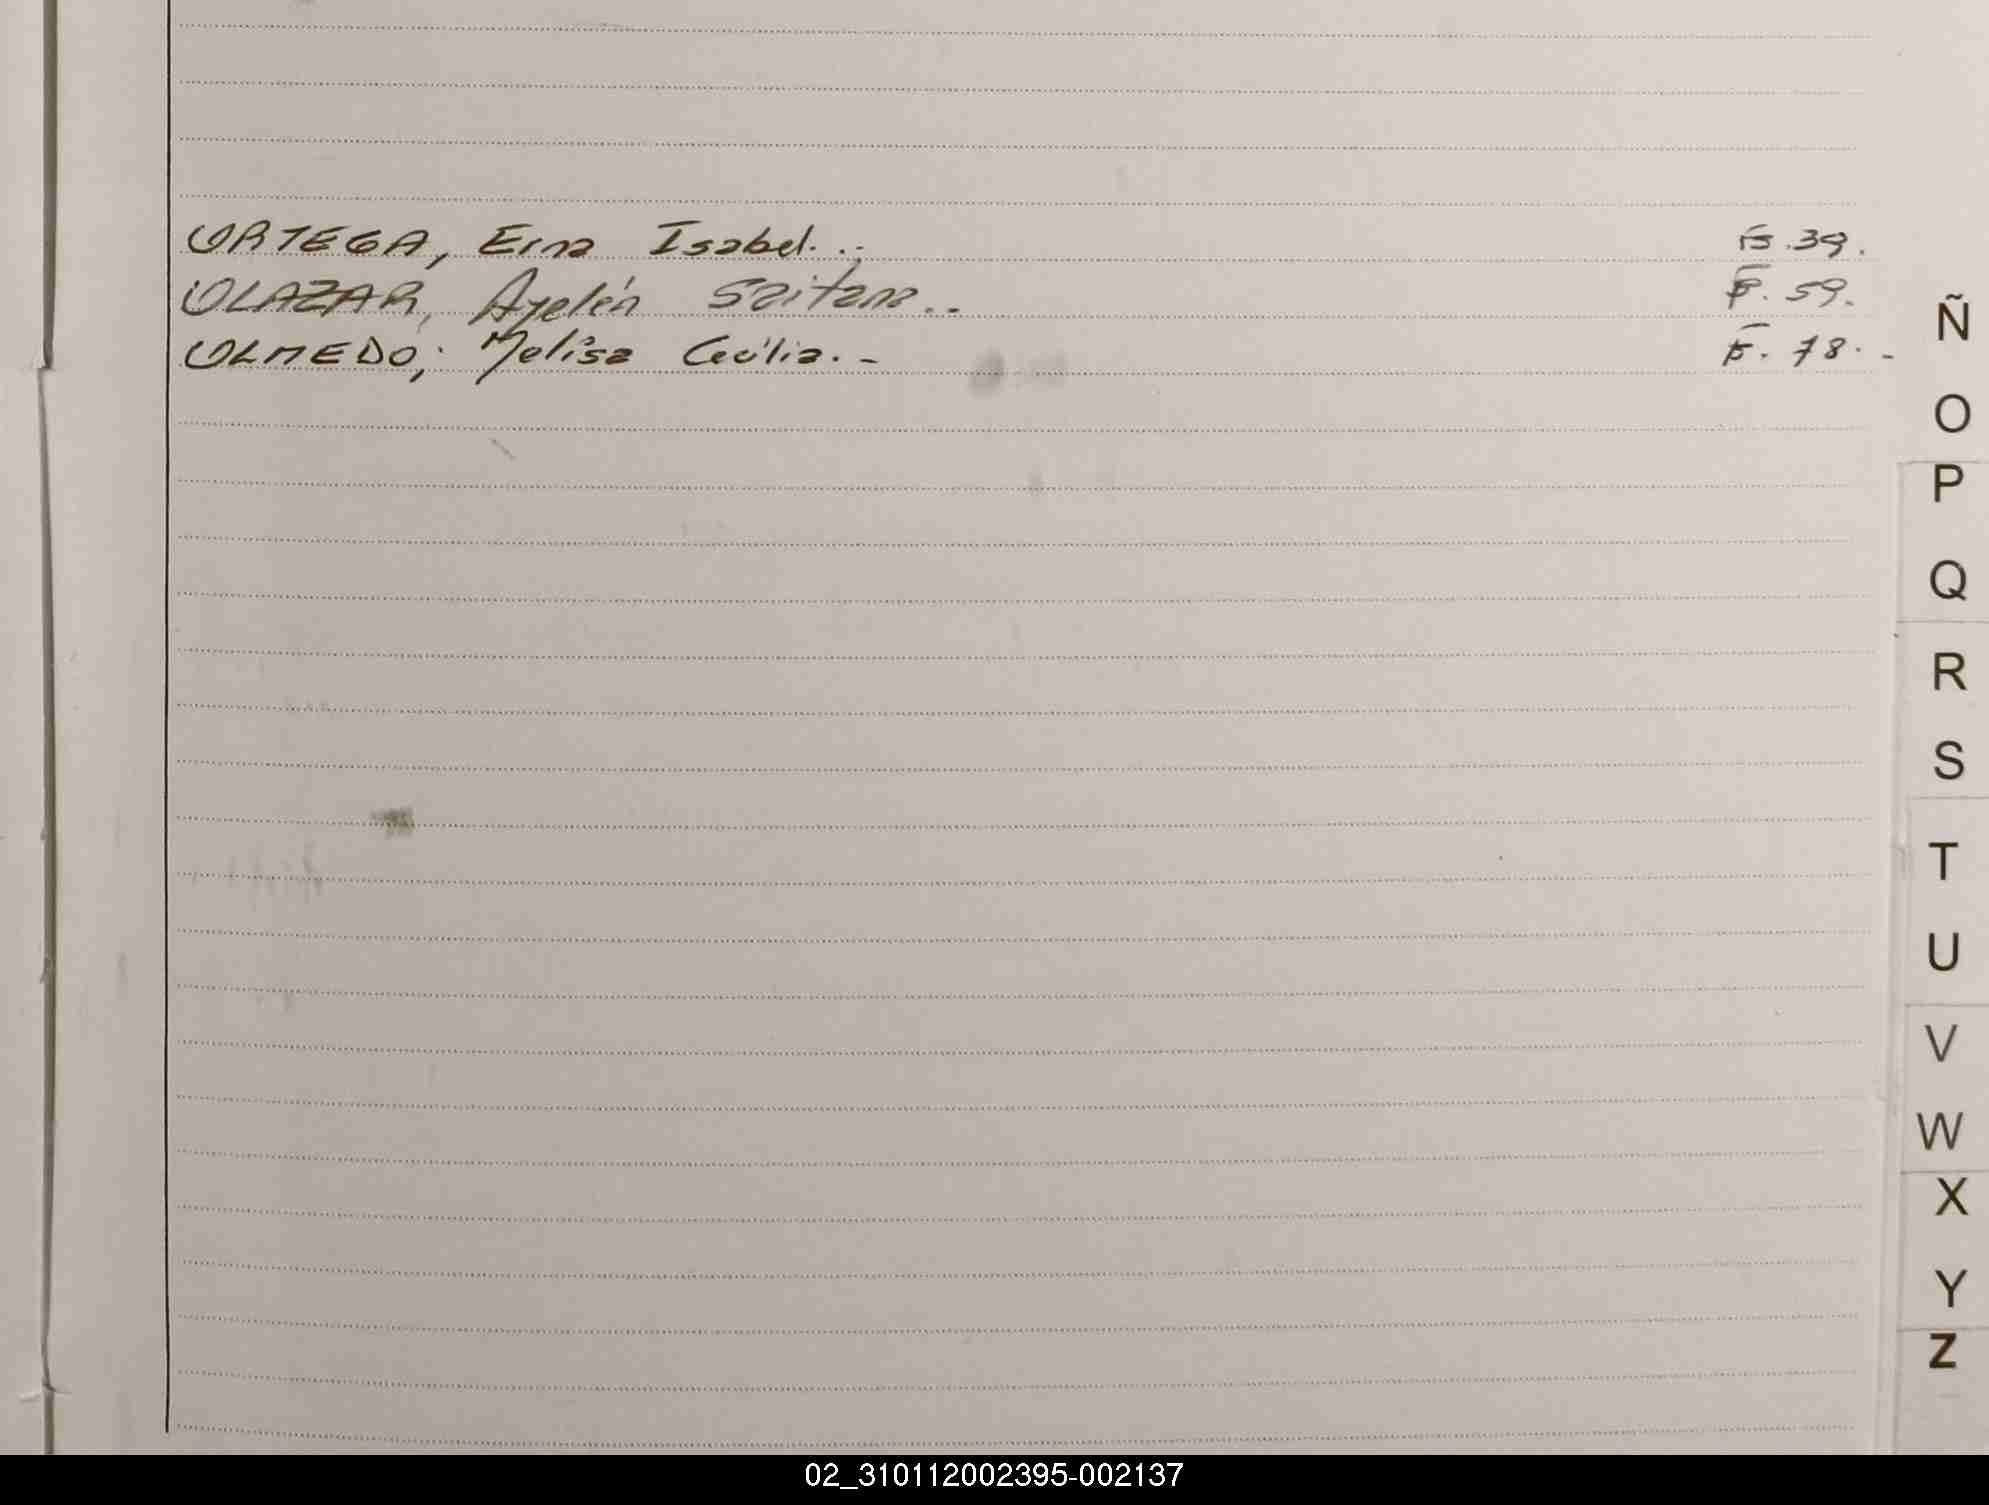 ORTEGA, Ema Isabel. . . F. 39.
OLAZAR, Ayelén Saitana. . F. 59.
OLMEDO, Melisa Cecilia. - F. 78. -
Ñ
O
P
Q
R
S
T
U
V
W
X
Y
Z
02_310112002395-002137